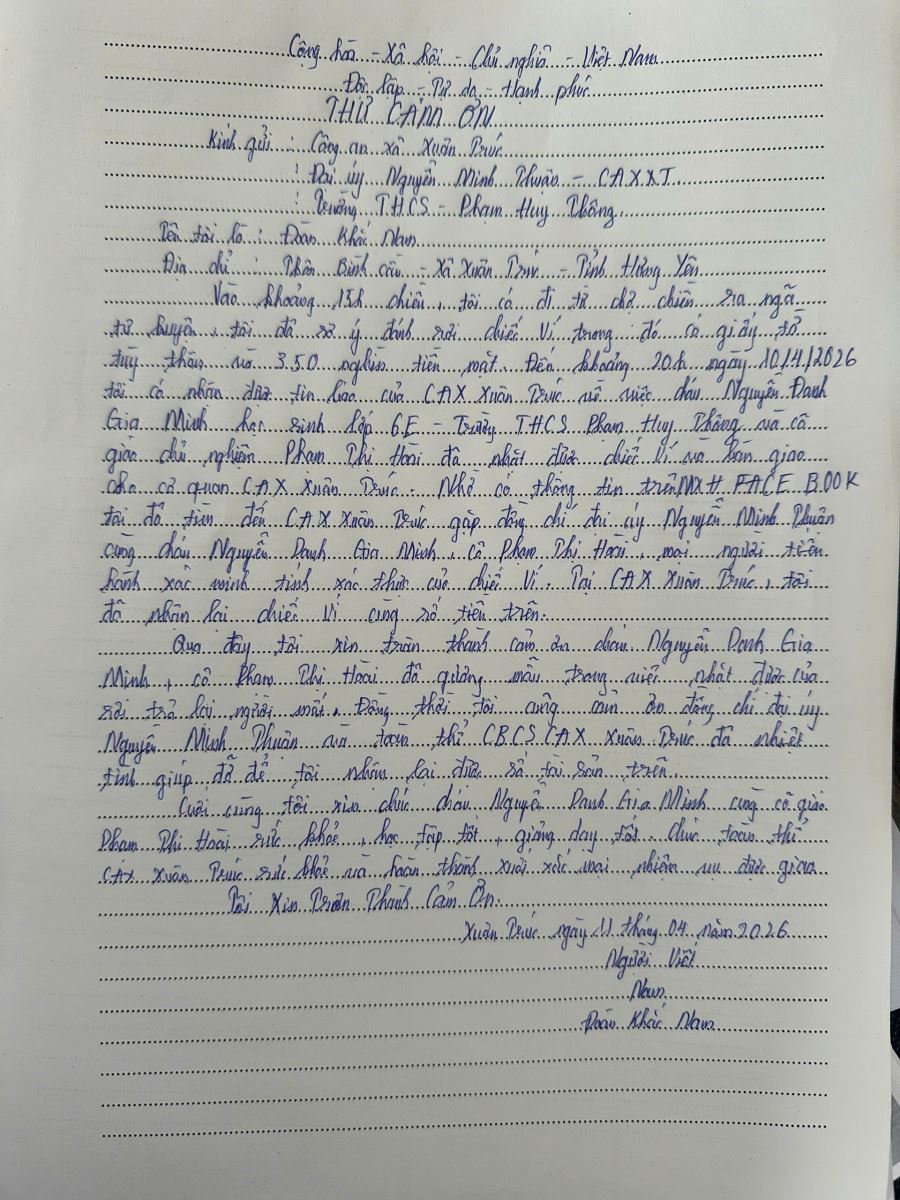 Cộng hòa - Xã hội - Chủ nghĩa - Việt Nam
Độc lập - Tự do - Hạnh phúc
THƯ CẢM ƠN
Kính gửi : Công an xã Xuân Trúc
: Đại úy Nguyễn Minh Thuận - CAXXT.
: Trường THCS - Phạm Huy Thông.
Tên tôi là : Đoàn Khắc Nam
Địa chỉ : Thôn Bình cầu - Xã Xuân Trúc - Tỉnh Hưng Yên
Vào khoảng 15h chiều, tôi có đi từ chợ chiều ra ngã
tư huyện, tôi đã sơ ý đánh rơi chiếc Ví trong đó có giấy tờ
tùy thân và 350 nghìn tiền mặt. Đến khoảng 20h ngày 10/4/2026
tôi có nhận được tin báo của CAX Xuân Trúc về việc cháu Nguyễn Danh
Gia Minh học sinh lớp 6E - Trường THCS Phạm Huy Thông và cô
giáo chủ nghiệm Phạm Thị Hoài đã nhặt được chiếc Ví và bàn giao
cho cơ quan CAX Xuân Trúc - Nhờ có thông tin trên MXH FACE BOOK
tôi đã tìm đến CAX Xuân Trúc gặp đồng chí đại úy Nguyễn Minh Thuận
cùng cháu Nguyễn Danh Gia Minh, cô Phạm Thị Hoài, mọi người tiến
hành xác minh tính xác thực của chiếc Ví. Tại CAX Xuân Trúc, tôi
đã nhận lại chiếc Ví cùng số tiền trên.
Qua đây tôi xin trân thành cảm ơn cháu Nguyễn Danh Gia
Minh, cô Phạm Thị Hoài đã gương mẫu trong việc nhặt được của
rơi trả lại người mất. Đồng thời tôi cũng cảm ơn đồng chí đại úy
Nguyễn Minh Thuận và toàn thể CBCS CAX Xuân Trúc đã nhiệt
tình giúp đỡ để tôi nhận lại được số tài sản trên.
Cuối cùng tôi xin chúc cháu Nguyễn Danh Gia Minh cùng cô giáo
Phạm Thị Hoài sức khỏe, học tập tốt, giảng dạy tốt. chúc toàn thể
CAX Xuân Trúc sức khỏe và hoàn thành xuất xắc mọi nhiệm vụ được giao.
Tôi Xin Trân Thành Cảm Ơn.
Xuân Trúc ngày 11 tháng 04 năm 2026
Người Viết
Nam
Đoàn Khắc Nam